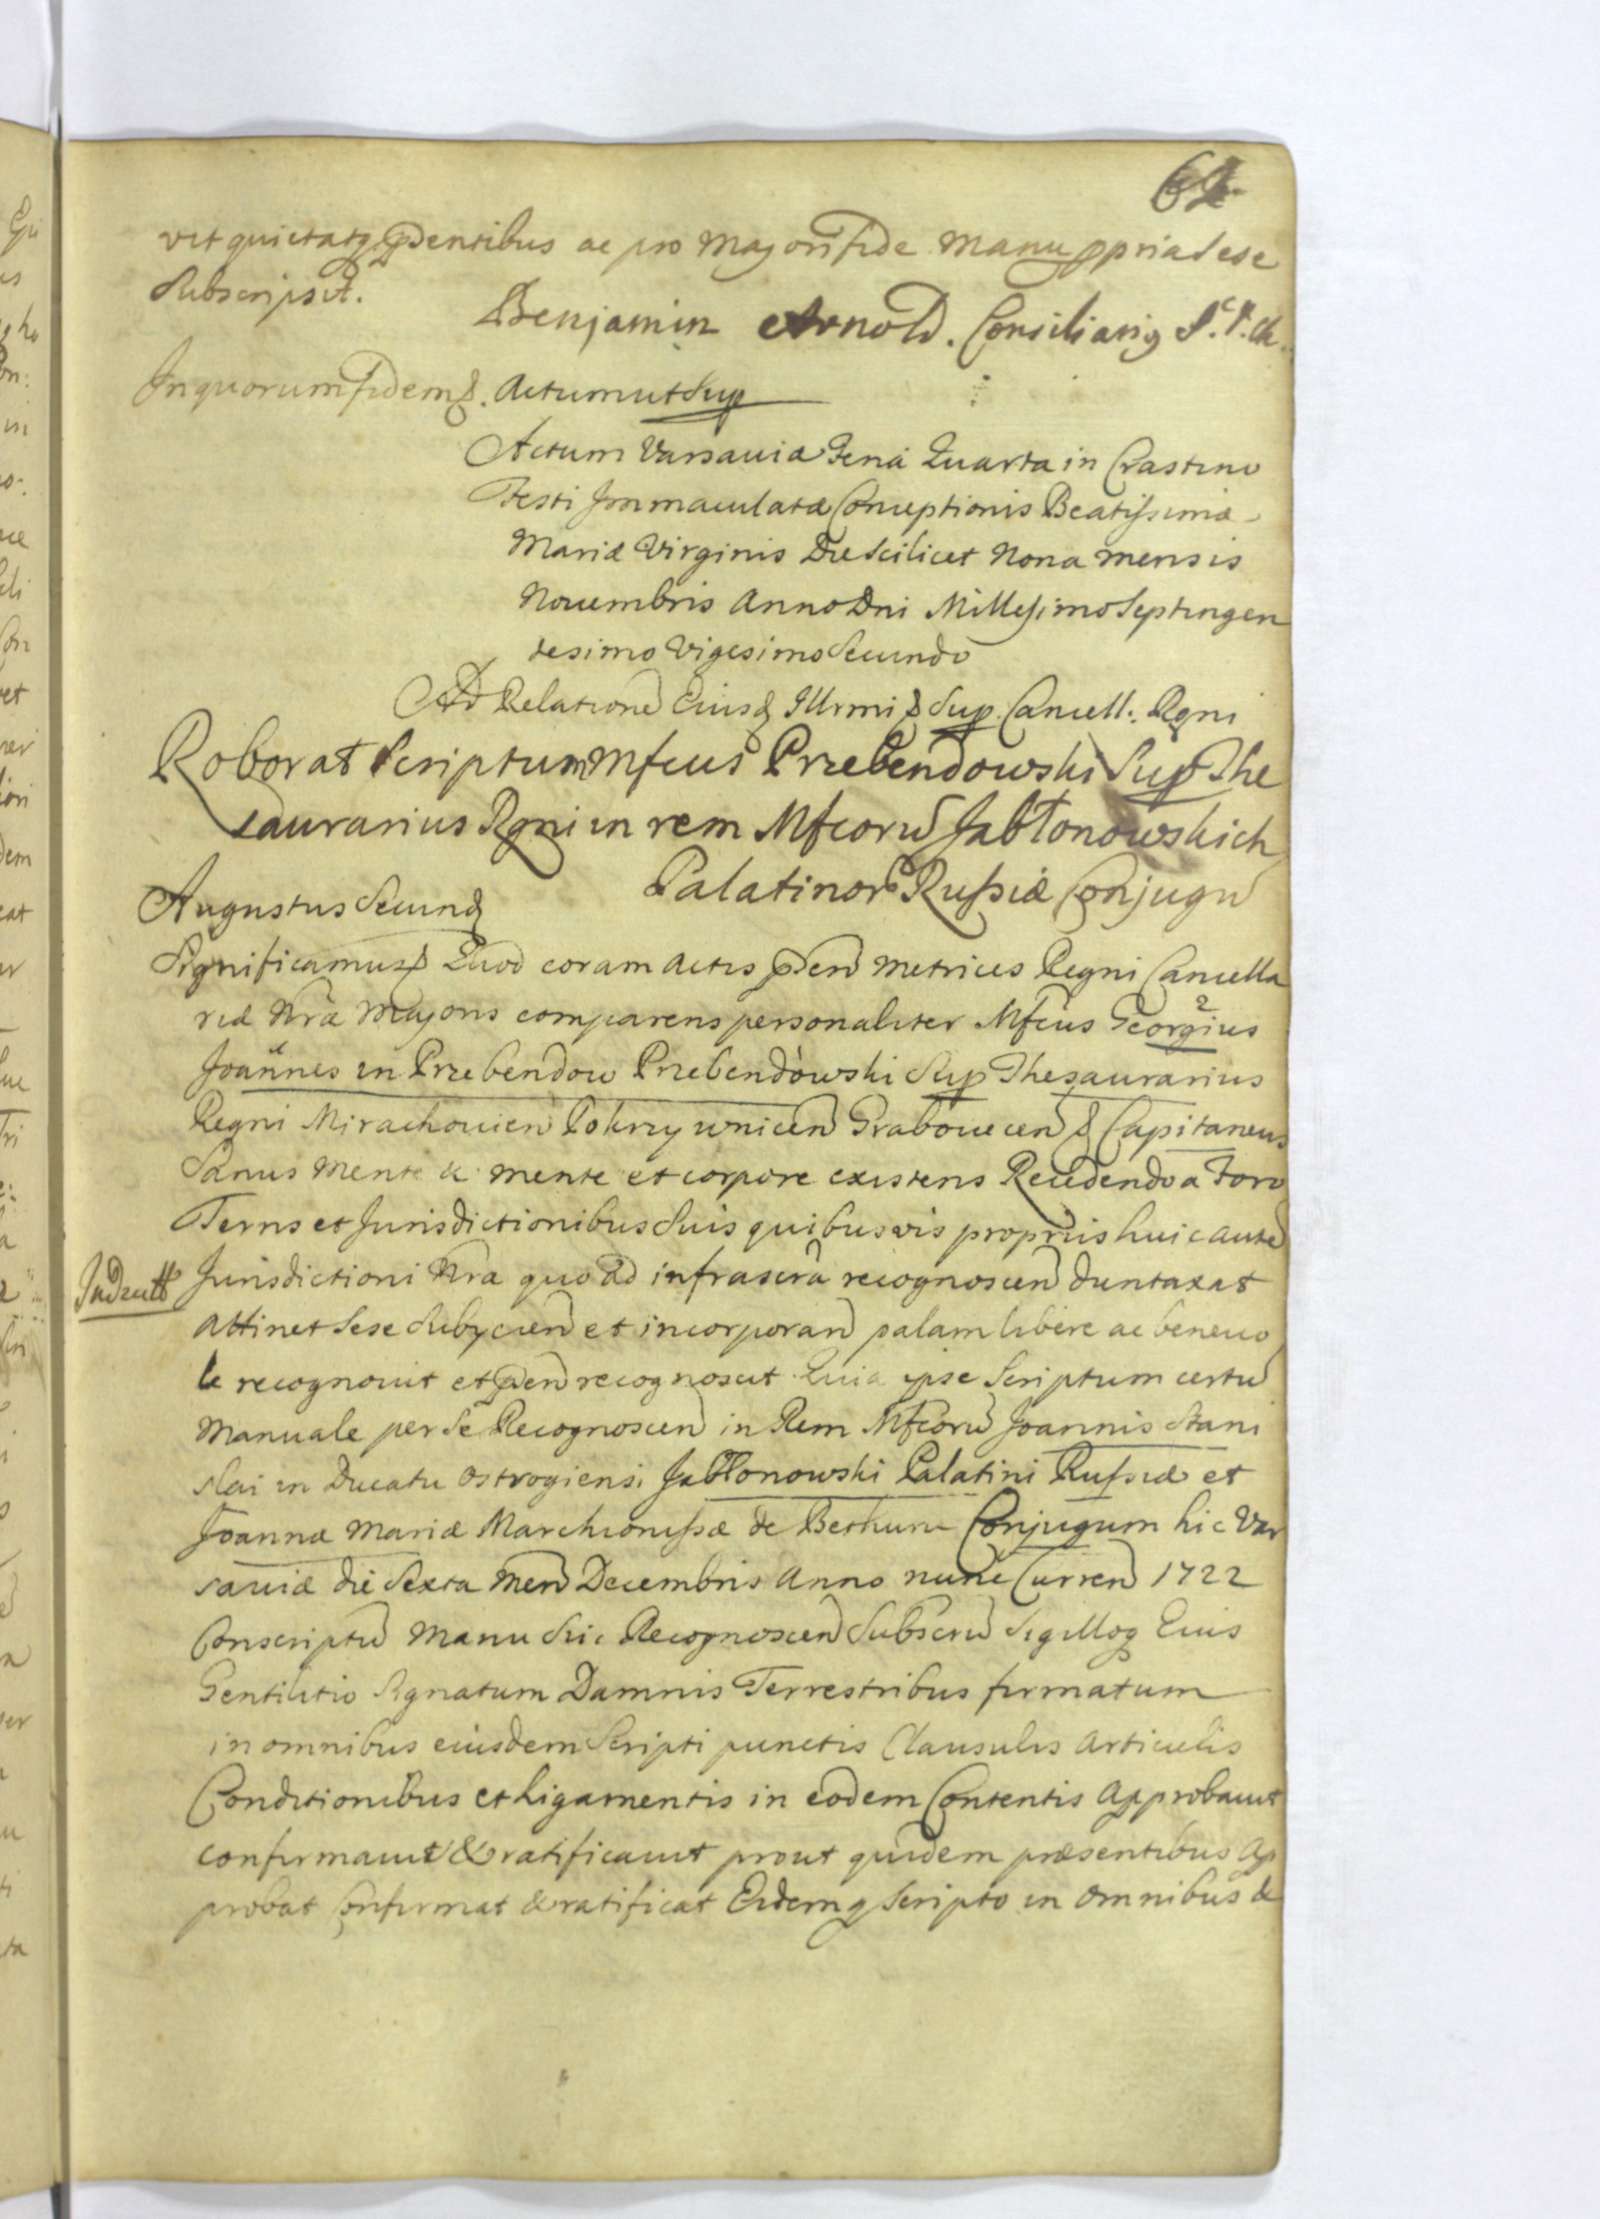 62
vit quietatq pdentibus ac pro Majori fide Manu ppria sese
Subscripsit.
Benjamin Arnold. Consiliariq S.
In quorum fidem &. Actum ut Sup
Actum Varsaviæ Feria Quarta in Crastino
Festi Immaculatæ Conceptionis Beatissimæ
Mariæ Virginis Die Scilicet Nona mensis
Novembris Anno Dni Millesimo Septingen
tesimo Vigesimo Secundo
Ad Relatione Eiusd Illrmi & Sup. Cancell: Rgni
Roborat Scriptum Mfcus Przebendowski Sup The
saurarius Rgni in rem Mfcoru Jabłonowskich
Palatinor Russiæ Conjugu
Augustus Secund
Significamus & Quod coram Actis pden Metrices Regni Cancella
riæ Nræ Majoris comparens personaliter Mfcus Georgius 2
Joannes in Przebendow Przebendowski Sup Thesaurarius
Regni Mirachovien Pokrzywnicen Grabovecen & Capitaneus
Sanus Mente & mente et corpore existens Recedendo a Foro
Terris et Jurisdictionibus Suis quibusvis propriis huic aute
Jurisdictioni Nræ quo ad infrascra recognoscen duntaxat
attinet Sese Subijcien et incorporan palam libere ac benevo
le recognovit et pden recognoscit Quia ipse Scriptum certu
Manuale per Se Recognoscen in Rem Mfcoru Joannis Stani
slai in Ducatu Ostrogiensi Jabłonowski Palatini Russiæ et
Joannæ Mariæ Marchionissæ de Bethune Conjugum hic Var
saviæ die Sexta Men Decembris Anno nunc Curren 1722
Conscriptu Manu Sui Recognoscen Subscru Sigilloq Eius
Gentilitio Signatum Damnis Terrestribus firmatum
in omnibus eiusdem Scripti punctis Clausulis Articulis
Conditionibus et Ligamentis in eodem Contentis Approbavit
confirmavit & ratificavit prout quidem præsentibus Ap
probat Confirmat & ratificat Eidemq Scripto in omnibus &